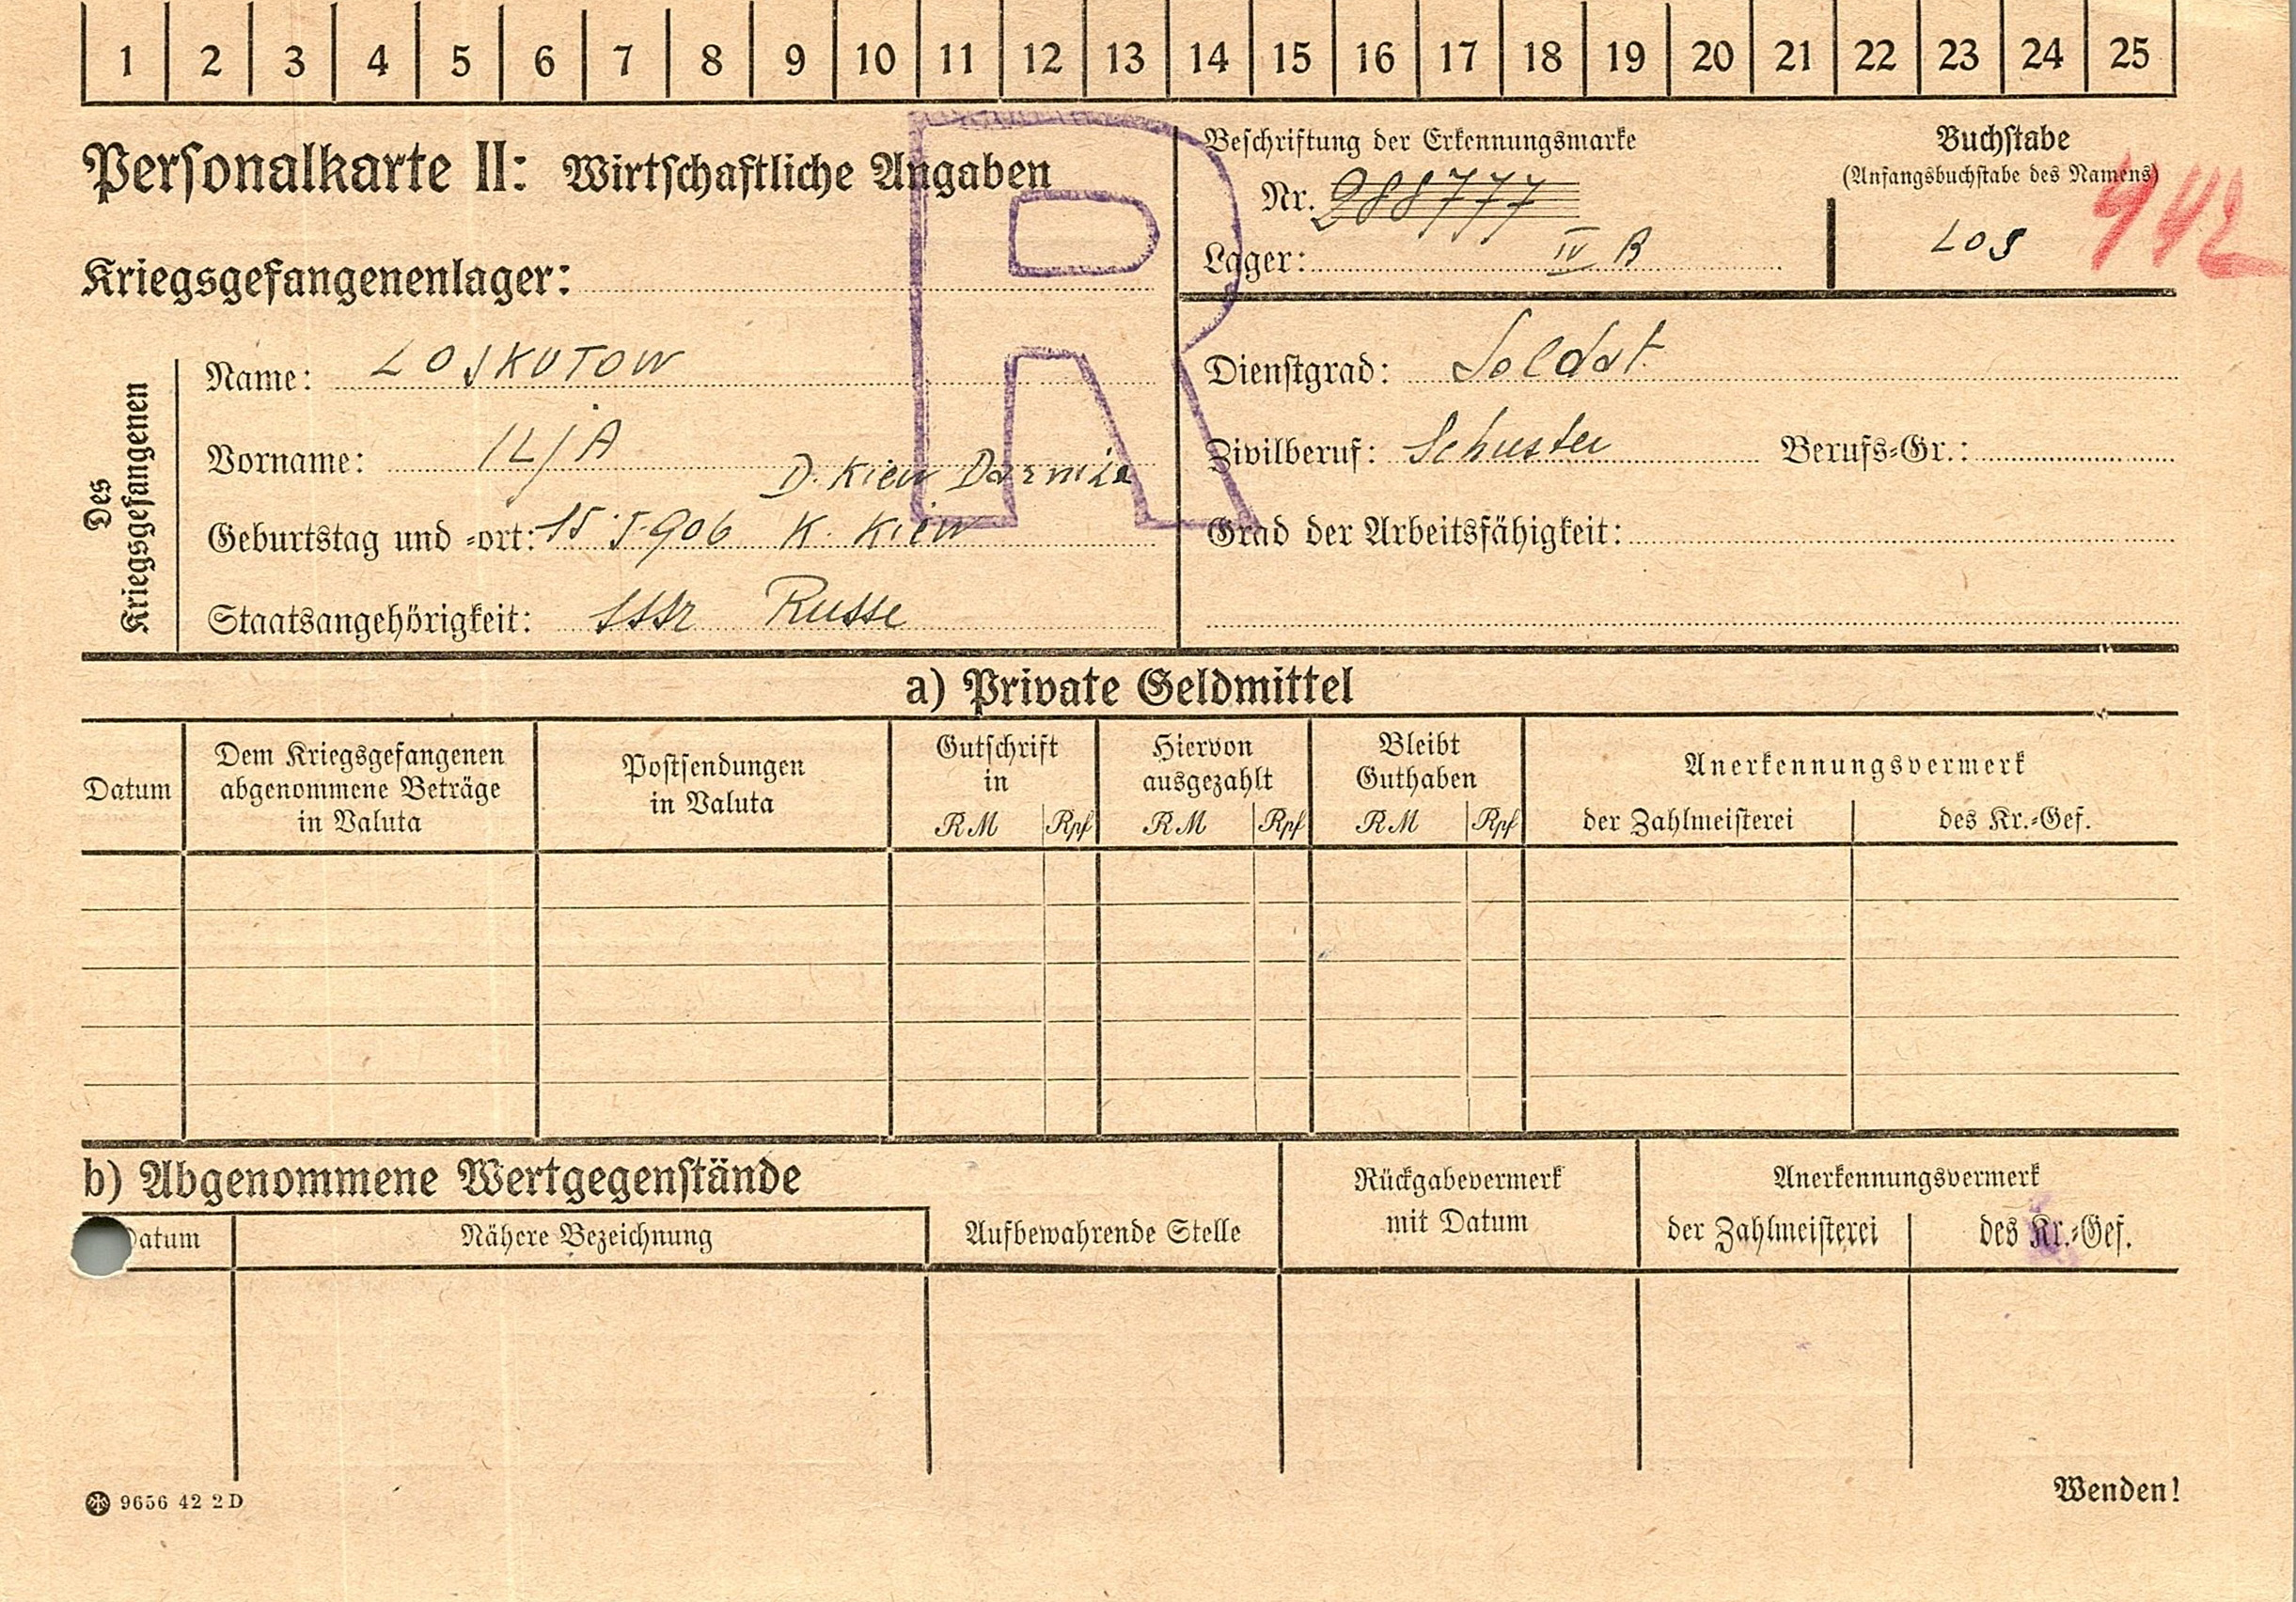 1 2 3 4 5 6 7 8 9 10 11 12 13 14 15 16 17 18 19 20 21 22 23 24 25
Personalkarte II: Wirtschaftliche Angaben
Kriegsgefangenenlager:
R
Beschriftung der Erkennungsmarke
Nr. 288777
Lager: IV B
Buchstabe
(Anfangsbuchstabe des Namens)
Los
942
Des
Kriegsgefangenen
Name: LOSKUTOW
Vorname: ILJA
D. Kiew Darniza
Geburtstag und -ort: 15.5.906 K. Kiew
Staatsangehörigkeit: SSSR Russe
Dienstgrad: Soldat
Zivilberuf: Schuster Berufs-Gr.:
Grad der Arbeitsfähigkeit:
a) Private Geldmittel
Datum
Dem Kriegsgefangenen
abgenommene Beträge
in Valuta
Postsendungen
in Valuta
Gutschrift
in
RM Rpf
Hiervon
ausgezahlt
RM Rpf
Bleibt
Guthaben
RM Rpf
Anerkennungsvermerk
der Zahlmeisterei
des Kr.-Gef.
b) Abgenommene Wertgegenstände
Datum
Nähere Bezeichnung
Aufbewahrende Stelle
Rückgabevermerk
mit Datum
Anerkennungsvermerk
der Zahlmeisterei
des Kr.-Gef.
9656 42 2D
Wenden!